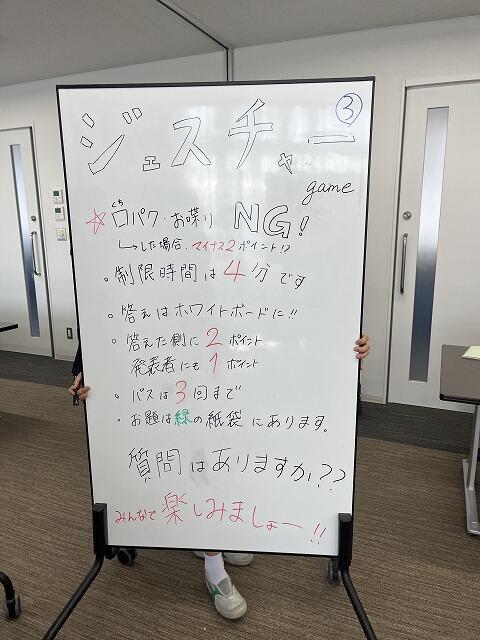 ③
ジェスチャー
game
☆口パク・お喋り NG!
くち
↳した場合、マイナス2ポイント!?
・制限時間は4分です
・答えはホワイトボードに!!
・答えた側に2ポイント
発表者にも1ポイント
・パスは3回まで
・お題は緑の紙袋にあります。
質問はありますか??
みんなで楽しみましょー!!